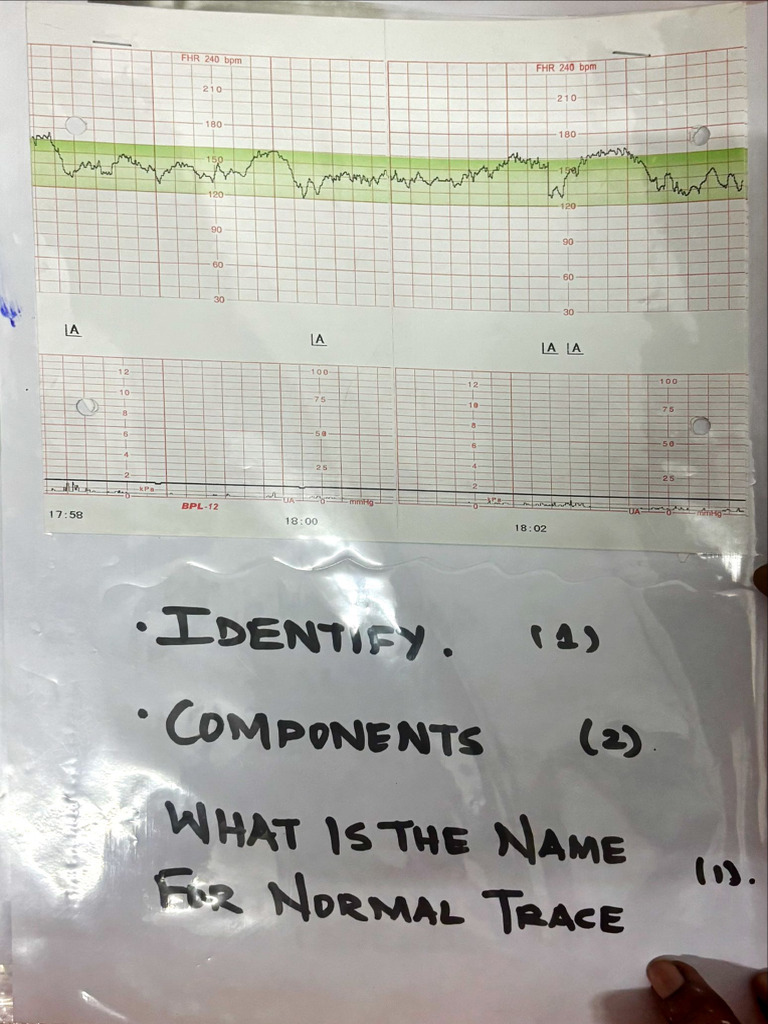 FHR 240 bpm FHR 240 bpm
210 210
180 180
150 150
120 120
90 90
60 60
30 30
A A A A
12 100 12 100
10 75 10 75
8 8
6 50 6 50
4 4
2 25 2 25
0 kPa UA 0 mmHg 0 kPa UA 0 mmHg
BPL-12
17:58 18:00 18:02
• IDENTIFY. (1)
• COMPONENTS (2).
WHAT IS THE NAME
FOR NORMAL TRACE (1).